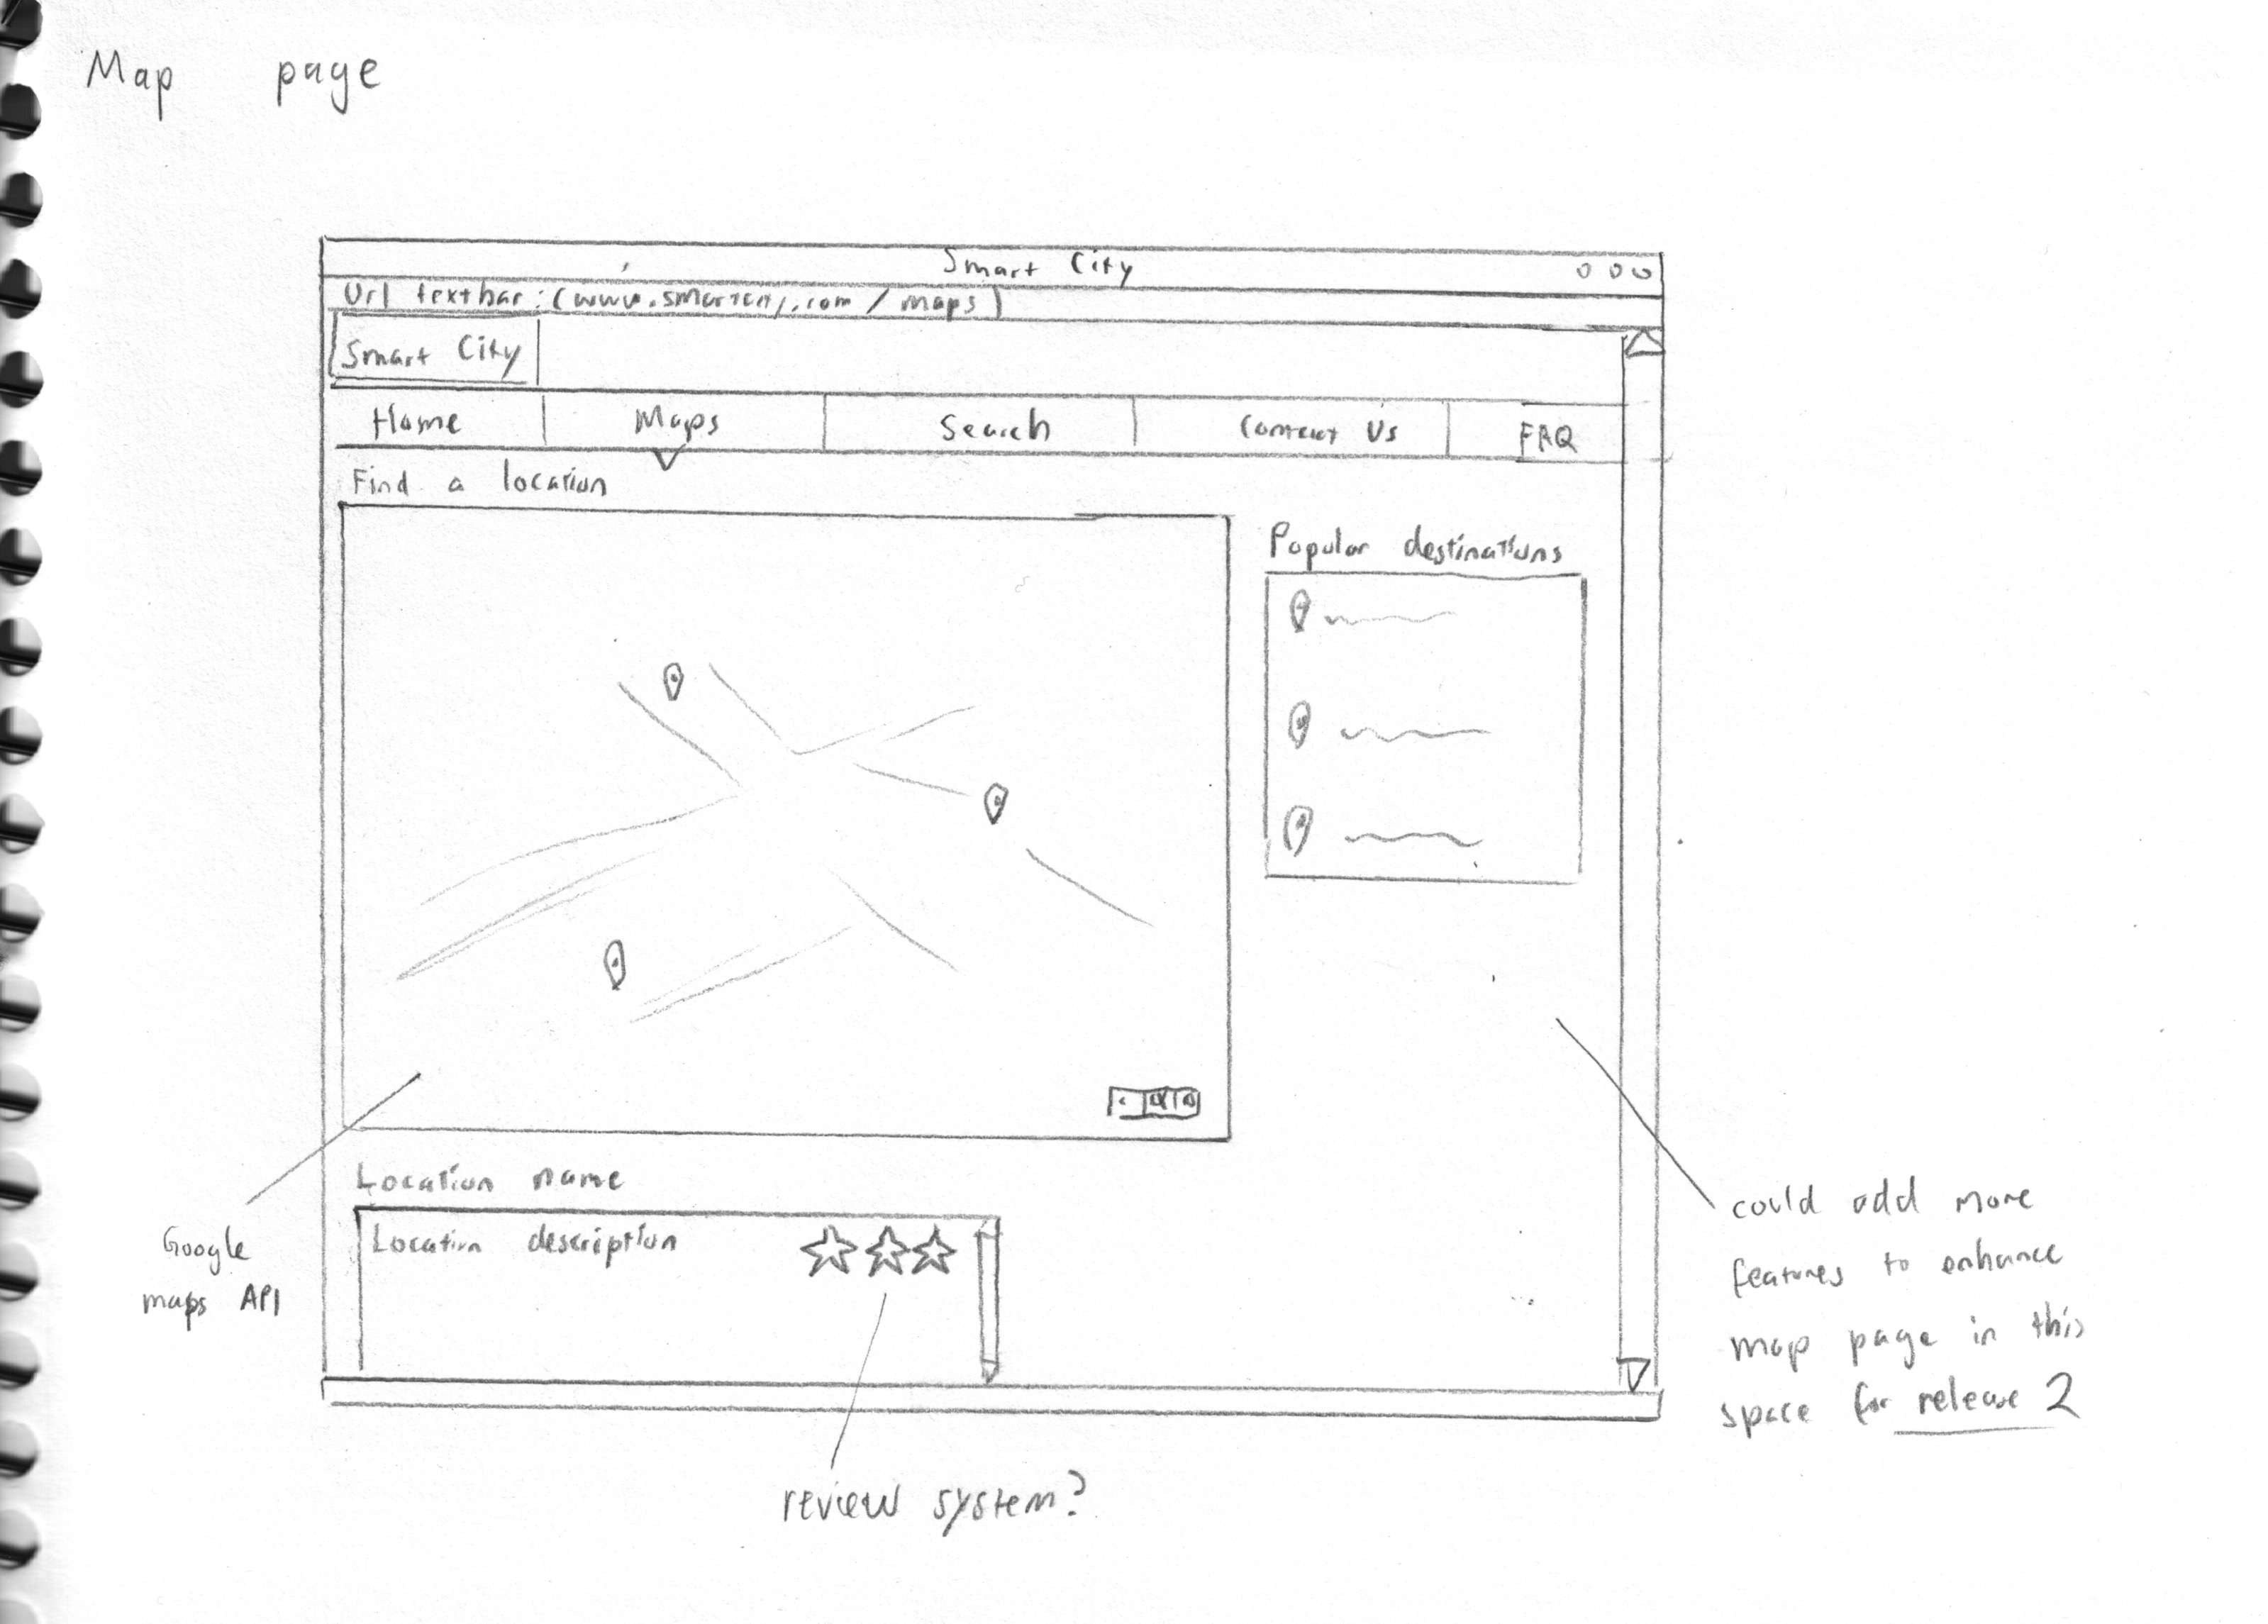 Map page
Smart City
Url textbar: (www.smartcity.com / maps)
Smart City
Home Maps Search Contact Us FAQ
Find a location
Popular destinations
Location name
Location description
Google
maps API
could add more
features to enhance
map page in this
space for release 2
review system?